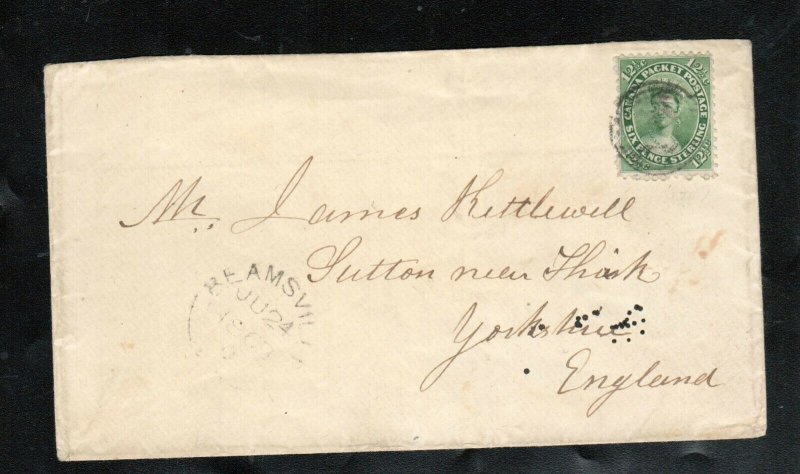 12½c 12½c
CANADA PACKET POSTAGE
SIX PENCE STERLING
12½c
Mr. James Kettlewell
Sutton near Thirsk
Yorkshire
England
BEAMSVIL
JU 24